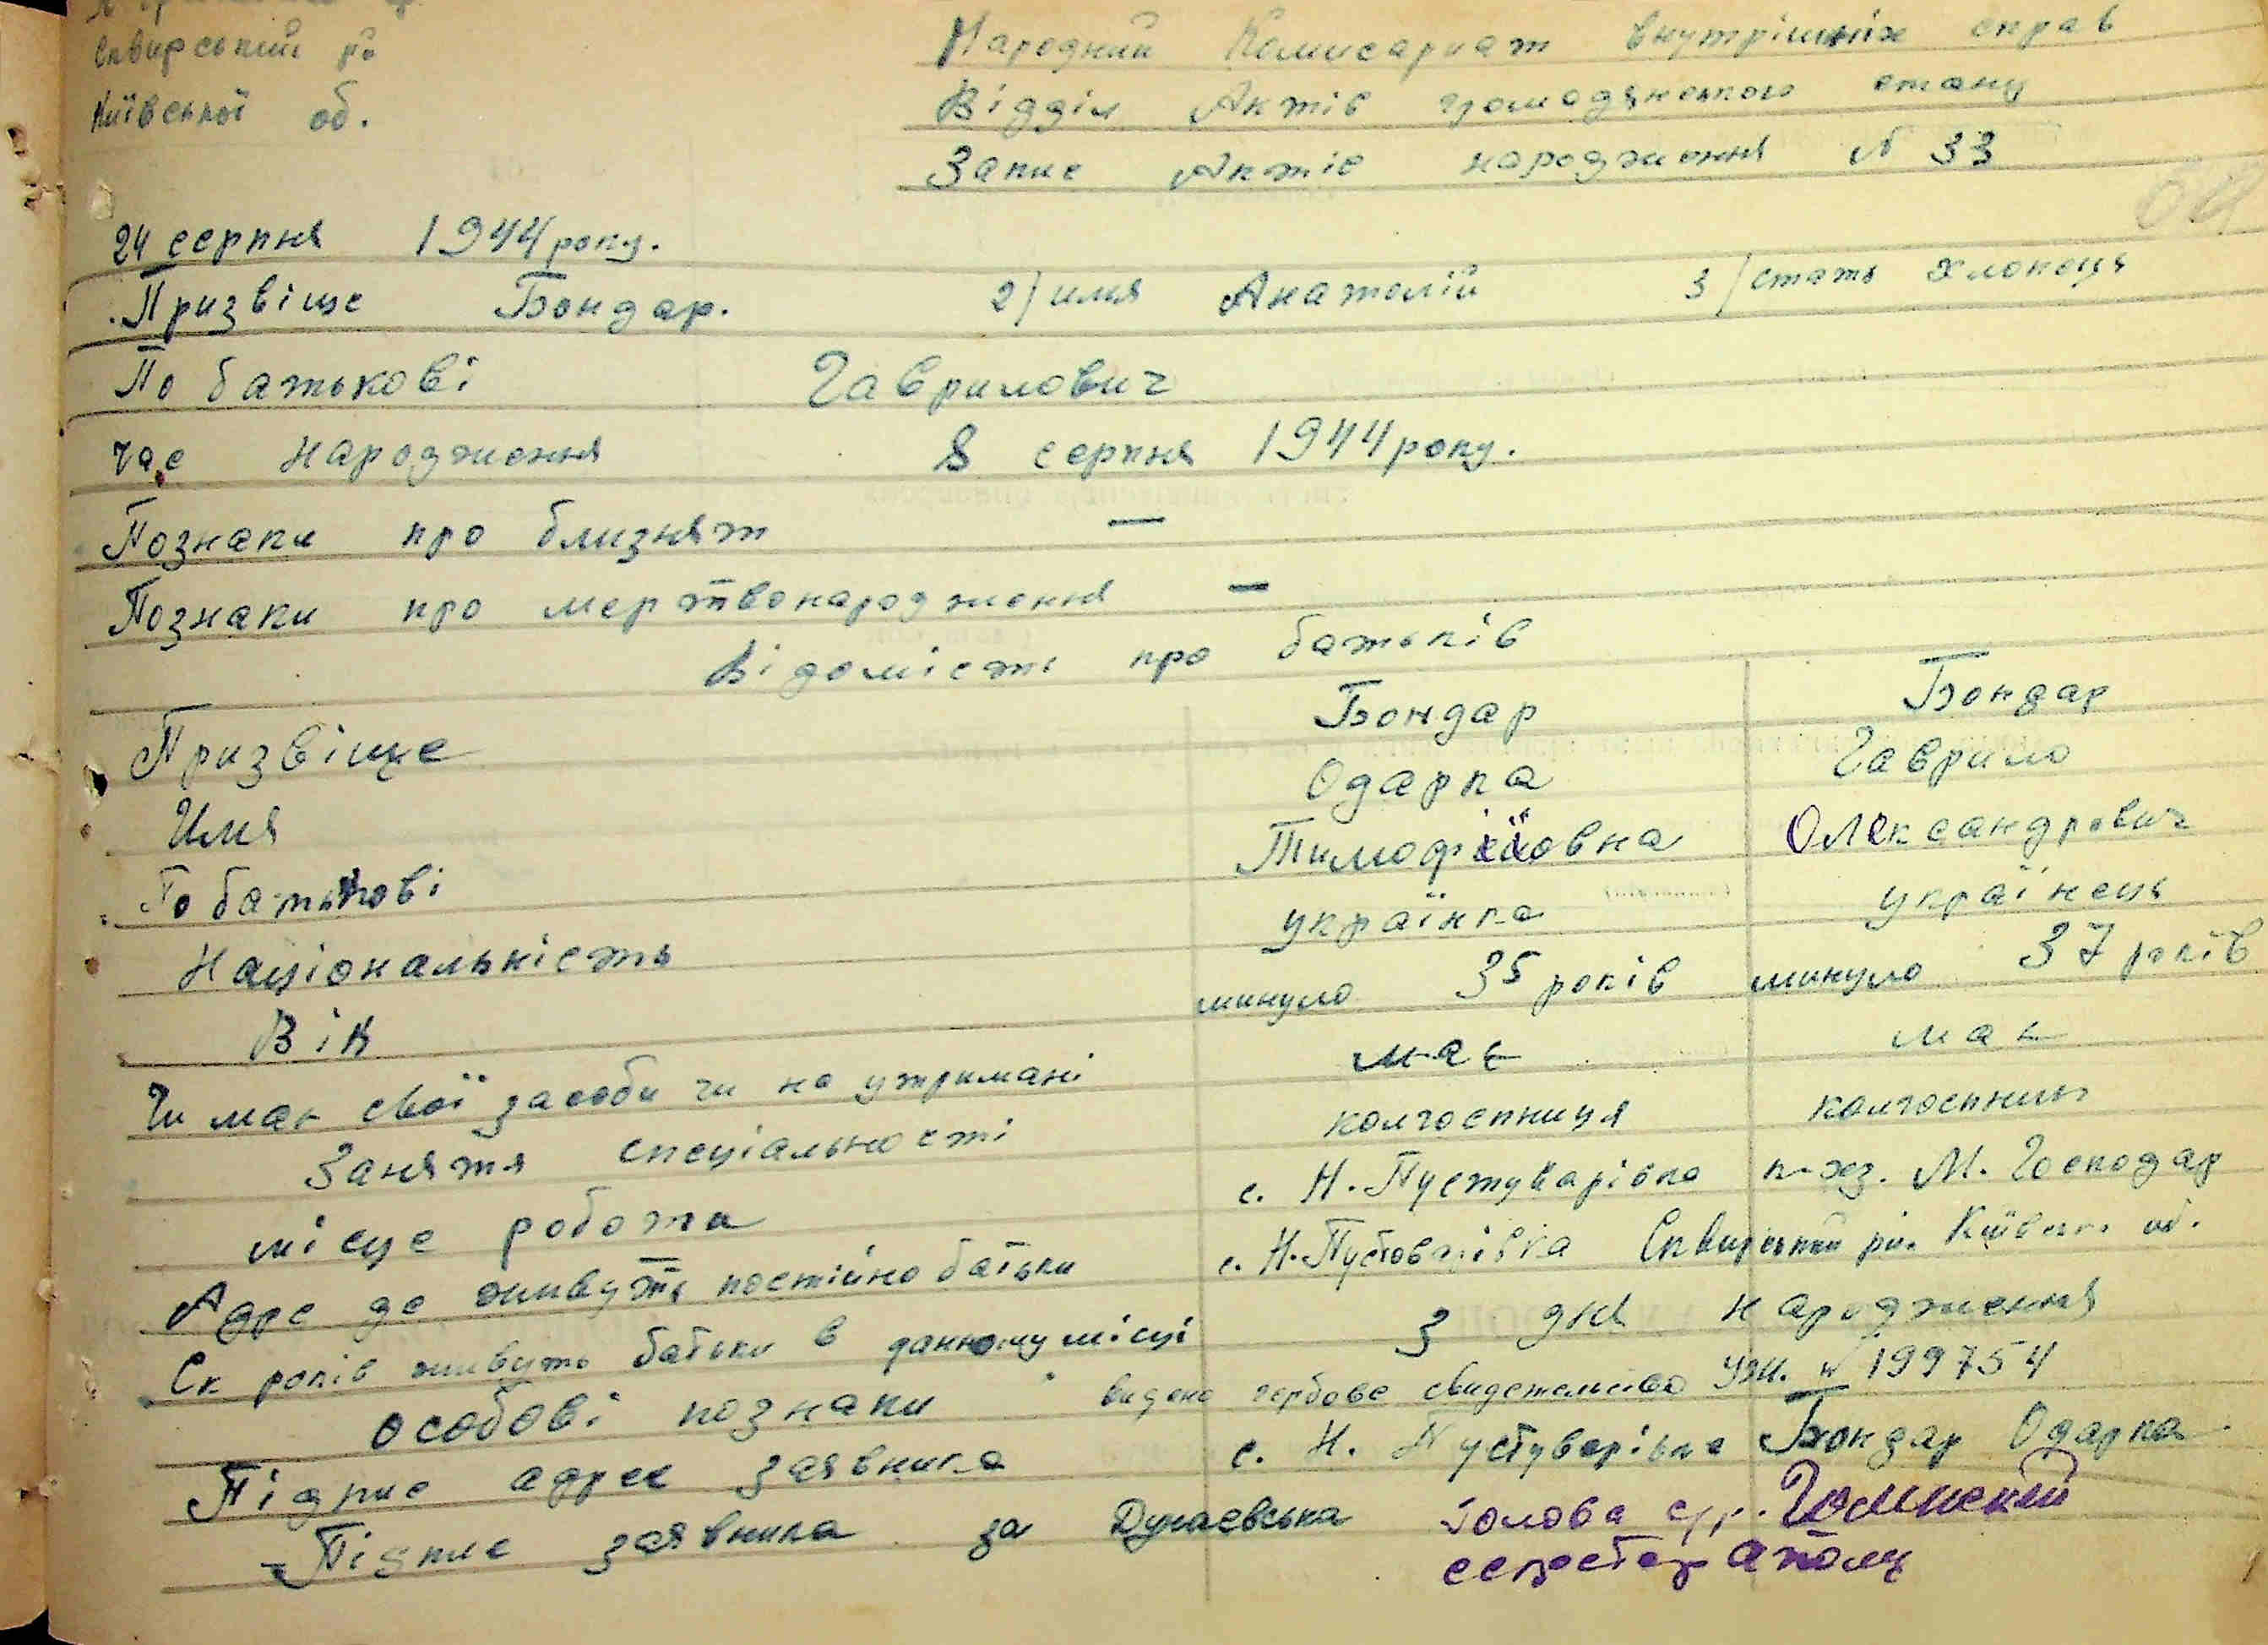 Сквирський р-
Київської об.
Народний Комисариат внутрішніх справ
Відділ Актів громадянського стану
Запис Актів народження N 33
24 серпня 1944 року.
Призвіще Бондар. 2/ имя Анатолій 3/ стать хлопець
По батькові Гаврилович
Час народження 8 серпня 1944 року.
Познаки про близнят —
Познаки про мертвонародження —
Відомість про батьків
Призвіще Бондар Бондар
Имя Одарка Гаврило
По батькові Тимофійовна Олександрович
Національність українка українець
Вік минуло 35 років минуло 37 років
Чи має свої засоби чи на утримані має має
Заняття спеціальності колгоспниця колгоспник
місце роботи с. Н. Пустуварівка к-хз. М. Господар
Адре де живуть постійно батьки с. Н. Пустоварівка Сквирський рн. Київськ. об.
Ск років живуть батьки в данному місці з дня народження
особові познаки видано гербове свидетельство УЖ. N 199754
Підпис адрес заявника с. Н. Пустуварівка Бондар Одарка
Підпис заявника за Дунаєвська голова с/р.
секретар